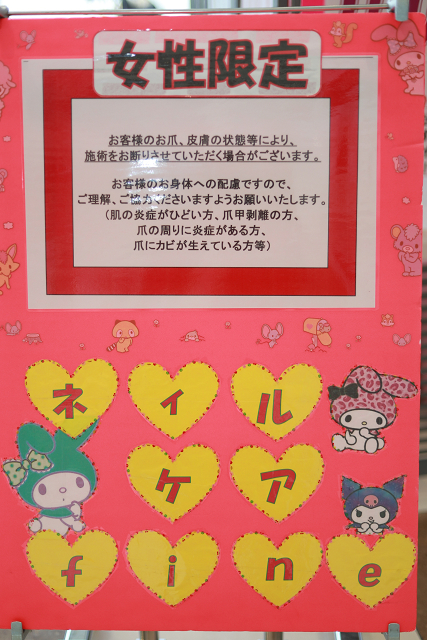 女性限定
お客様のお爪、皮膚の状態等により、
施術をお断りさせていただく場合がございます。
お客様のお身体への配慮ですので、
ご理解、ご協力くださいますようお願いいたします。
(肌の炎症がひどい方、爪甲剥離の方、
爪の周りに炎症がある方、
爪にカビが生えている方等)
ネィル
ケア
fine